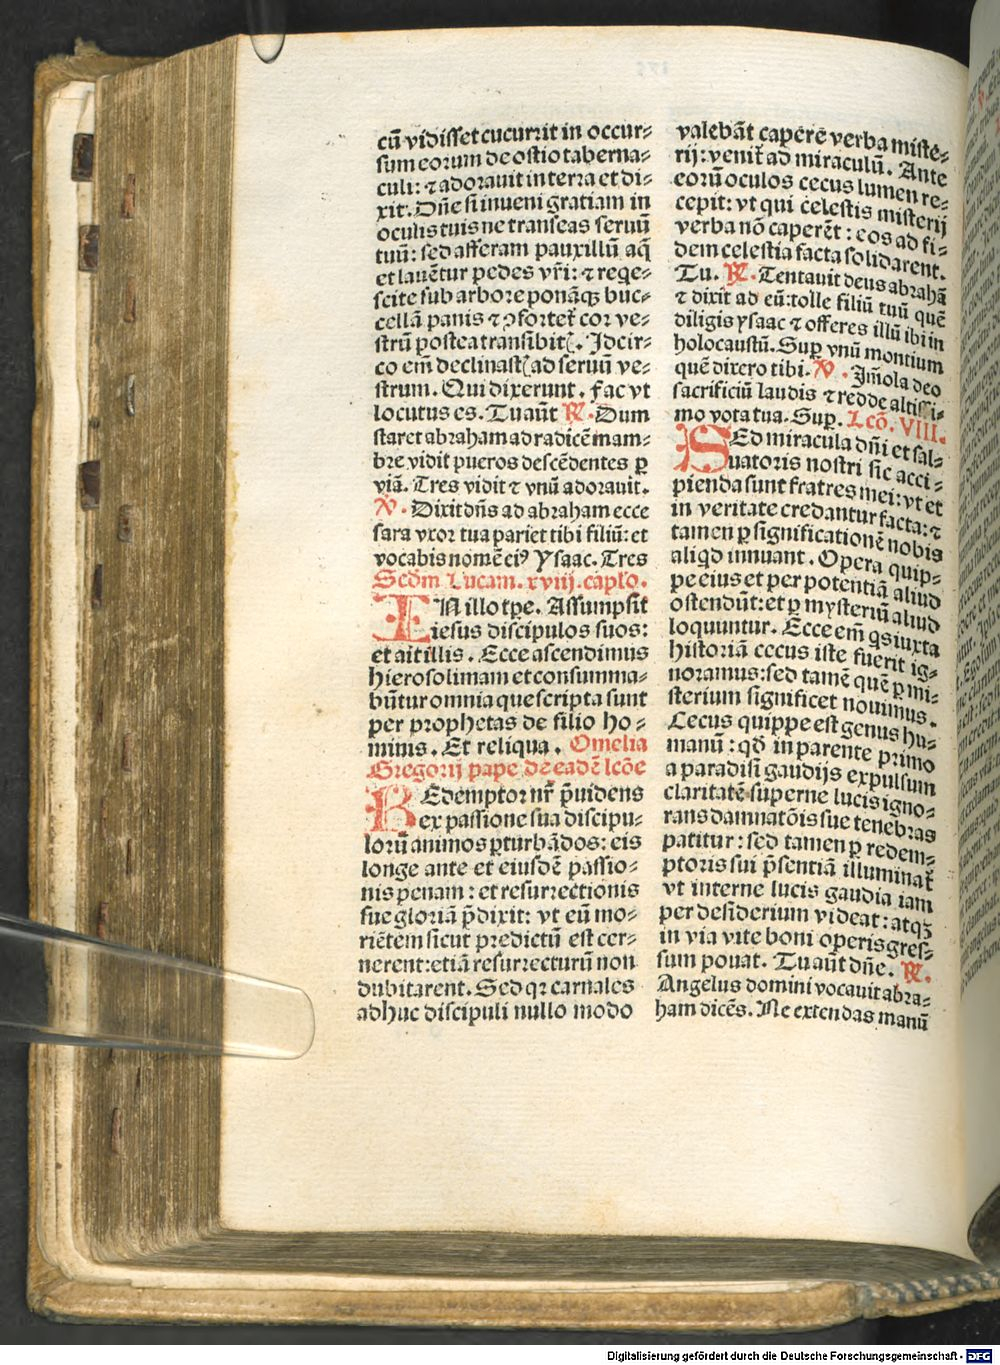 cū vidisset cucurrit in occur⸗
sum eorum de ostio taberna⸗
culi: ⁊ adorauit in terra et di⸗
xit. Dn̄e si inueni gratiam in
oculis tuis ne transeas seruū
tuū: sed afferam pauxillū aq̄
et lauētur pedes vr̄i: ⁊ reqe⸗
scite sub arbore ponāqꝫ buc⸗
cellā panis ⁊ ꝯfortet̄ cor ve⸗
strū postea transibit(. Idcir⸗
co em̄ declinast( ad seruū ve⸗
strum. Qui dixerunt. fac vt
locutus es. Tu aūt ℟. Dum
staret abraham ad radicē mam⸗
bre vidit pueros descēdentes ꝑ
viā. Tres vidit ⁊ vnū adorauit.
℣. Dixit dn̄s ad abraham ecce
sara vxor tua pariet tibi filiū: et
vocabis nomē eiꝰ Ysaac. Tres
Scd̄m Lucam. xviij. caplo.
IN illo tp̄e. Assumpsit
iesus discipulos suos:
et ait illis. Ecce ascendimus
hierosolimam et consumma⸗
būtur omnia que scripta sunt
per prophetas de filio ho⸗
minis. Et reliqua. Omelia
Gregorij pape de eadē lcōe
REdemptor nr̄ p̄uidens
ex passione sua discipu⸗
lorū animos ꝑturbādos: eis
longe ante et eiusdē passio⸗
nis penam: et resurrectionis
sue gloriā p̄dixit: vt eū mo⸗
riētem sicut predictū est cer⸗
nerent: etiā resurrecturū non
dubitarent. Sed qꝛ carnales
adhuc discipuli nullo modo
valebāt capere verba miste⸗
rij: venit̄ ad miraculū. Ante
eorū oculos cecus lumen re⸗
cepit: vt qui celestis misterij
verba nō caperēt: eos ad fi⸗
dem celestia facta solidarent.
Tu. ℟. Tentauit deus abrahā
⁊ dixit ad eū: tolle filiū tuū quē
diligis ysaac ⁊ offeres illū ibi in
holocaustū. Suꝑ vnū montium
quē dixero tibi. ℣. Im̄ola deo
sacrificiū laudis ⁊ redde altissi⸗
mo vota tua. Suꝑ. Lcō. VIII.
SEd miracula dn̄i et sal⸗
uatoris nostri sic acci⸗
pienda sunt fratres mei: vt et
in veritate credantur facta: ⁊
tamen ꝑ significationē nobis
aliqd innuant. Opera quip⸗
pe eius et per potentiā aliud
ostendūt: et ꝑ mysteriū aliud
loquuntur. Ecce em̄ qs iuxta
historiā cecus iste fuerit ig⸗
noramus: sed tamē quē ꝑ mi⸗
sterium significet nouimus.
Cecus quippe est genus hu⸗
manū: qd̄ in parente primo
a paradisi gaudijs expulsum
claritatē superne lucis igno⸗
rans damnatōis sue tenebras
patitur: sed tamen ꝑ redem⸗
ptoris sui p̄sentiā illuminat̄
vt interne lucis gaudia iam
per desiderium videat: atqꝫ
in via vite boni operis gres⸗
sum ponat. Tu aūt dn̄e. ℟.
Angelus domini vocauit abra⸗
ham dicēs. Ne extendas manū
Digitalisierung gefördert durch die Deutsche Forschungsgemeinschaft - DFG